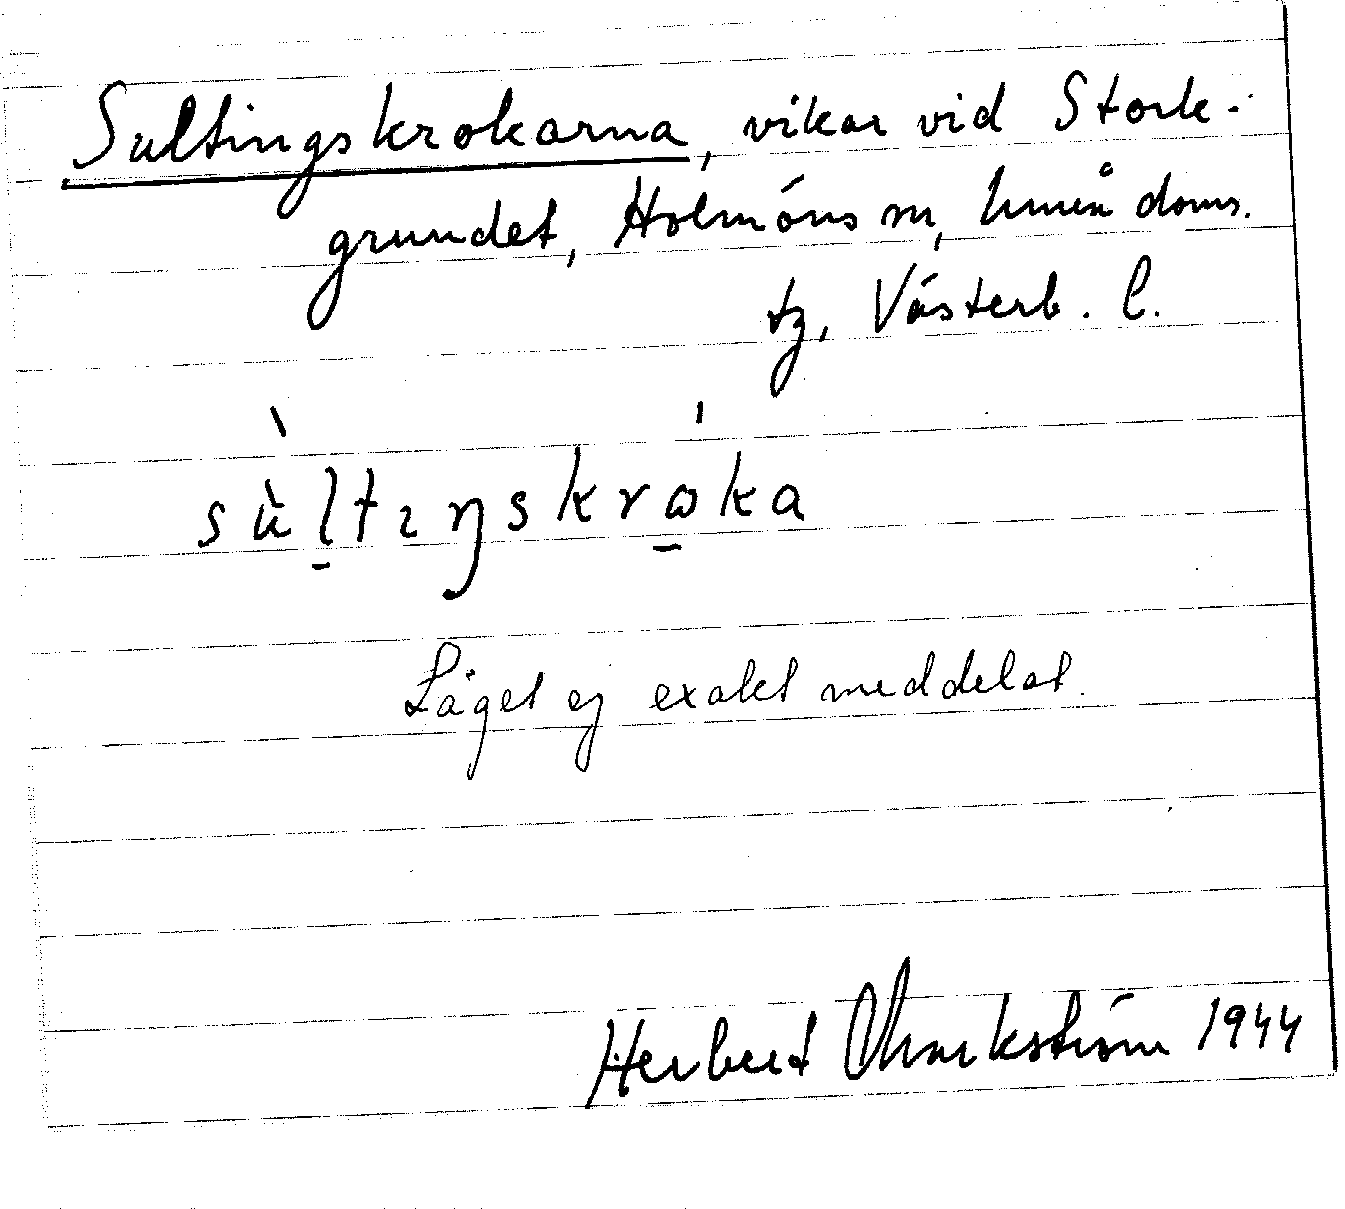 Sultingskrokarna, vikar vid Stork-
grundet, Holmöns sn, Umeå doms.
tg, Västerb. l.
sùl̠tıŋskrω̠ka
Läget ej exakt meddelat.
Herbert Markström 1944